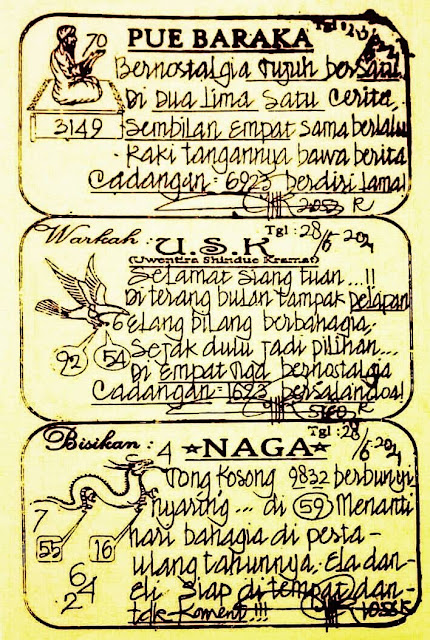 PUE BARAKA
70
3149
Bernostalgia Tujuh berSatu
Di Dua Lima Satu Cerita,
Sembilan Empat sama berlalu
Kaki tangannya bawa berita
Cadangan = 6923 berdiri lama!
Warkah : U.S.K Tgl : 28/6-2021
(Uwentira Shindue Kramat)
Selamat Siang tuan...!!
Di terang bulan tampak Delapan
Elang bilang berbahagia,
Sejak dulu jadi pilihan...
Di Empat Tiga bernostalgia
Cadangan = 1623 bersalandoa!
6
92
54
Bisikan : 4 NAGA Tgl : 28/6-2021
Tong Kosong 9832 berbunyi
nyaring... di 59 Menanti
hari bahagia di pesta-
ulang tahunnya. Ela dan-
eli Siap di tempat dan-
tdk-Koment!!!
7
55
16
6
4
2